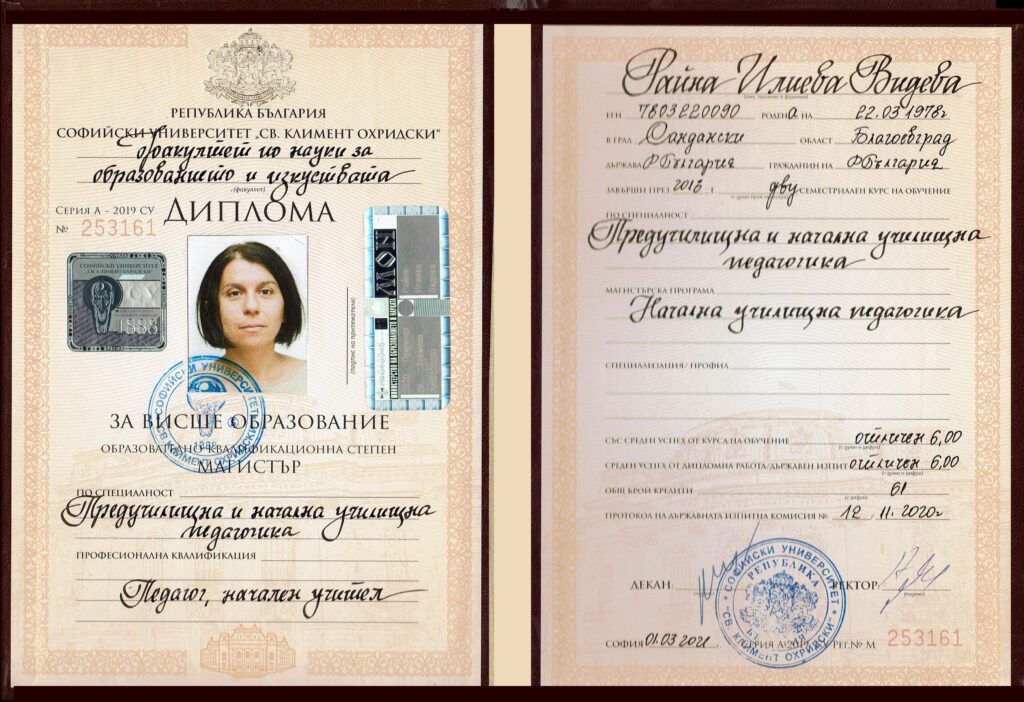 РЕПУБЛИКА БЪЛГАРИЯ
СОФИЙСКИ УНИВЕРСИТЕТ „СВ. КЛИМЕНТ ОХРИДСКИ“
Факултет по науки за
образованието и изкуствата
(факултет)
СЕРИЯ А – 2019 СУ ДИПЛОМА
№ 253161
СОФИЙСКИ УНИВЕРСИТЕТ
"СВ. КЛИМЕНТ ОХРИДСКИ"
1888
(подпис на притежателя)
МОН
СОФИЙСКИ УНИВЕРСИТЕТ
СВ. КЛИМЕНТ ОХРИДСКИ
1888
ЗА ВИСШЕ ОБРАЗОВАНИЕ
ОБРАЗОВАТЕЛНО-КВАЛИФИКАЦИОННА СТЕПЕН
МАГИСТЪР
ПО СПЕЦИАЛНОСТ
Предучилищна и начална училищна
педагогика
ПРОФЕСИОНАЛНА КВАЛИФИКАЦИЯ
Педагог, начален учител
Райна Илиева Видева
ЕГН 7803220090 РОДЕНА НА 22.03.1978г
В ГРАД Сандански ОБЛАСТ Благоевград
ДЪРЖАВА РБългария ГРАЖДАНИН НА РБългария
ЗАВЪРШИ ПРЕЗ Г. дву СЕМЕСТРИАЛЕН КУРС НА ОБУЧЕНИЕ
ПО СПЕЦИАЛНОСТ
Предучилищна и начална училищна
педагогика
МАГИСТЪРСКА ПРОГРАМА
Начална училищна педагогика
СПЕЦИАЛИЗАЦИЯ/ ПРОФИЛ
СЪС СРЕДЕН УСПЕХ ОТ КУРСА НА ОБУЧЕНИЕ отличен 6,00
(с думи и цифри)
СРЕДЕН УСПЕХ ОТ ДИПЛОМНА РАБОТА/ДЪРЖАВЕН ИЗПИТ отличен 6,00
(с думи и цифри)
ОБЩ БРОЙ КРЕДИТИ 61
(с цифри)
ПРОТОКОЛ НА ДЪРЖАВНАТА ИЗПИТНА КОМИСИЯ № 12, 11.2020г
ДЕКАН: РЕКТОР:
(подпис)
СОФИЙСКИ УНИВЕРСИТЕТ
"СВ. КЛИМЕНТ ОХРИДСКИ"
РЕПУБЛИКА
СОФИЯ 01.03.2021 СЕРИЯ А-2019 РЕГ.№ М 253161